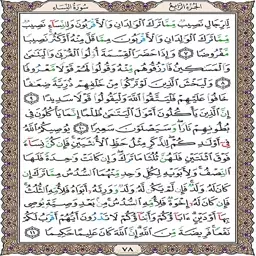 سورة النساء
الجزء الرابع
لِّلرِّجَالِ نَصِيبٌ مِّمَّا تَرَكَ ٱلْوَٰلِدَانِ وَٱلْأَقْرَبُونَ وَلِلنِّسَآءِ نَصِيبٌ
مِّمَّا تَرَكَ ٱلْوَٰلِدَانِ وَٱلْأَقْرَبُونَ مِمَّا قَلَّ مِنْهُ أَوْ كَثُرَ نَصِيبًا
مَّفْرُوضًا ٧ وَإِذَا حَضَرَ ٱلْقِسْمَةَ أُو۟لُوا۟ ٱلْقُرْبَىٰ وَٱلْيَتَٰمَىٰ
وَٱلْمَسَٰكِينُ فَٱرْزُقُوهُم مِّنْهُ وَقُولُوا۟ لَهُمْ قَوْلًا مَّعْرُوفًا
٨ وَلْيَخْشَ ٱلَّذِينَ لَوْ تَرَكُوا۟ مِنْ خَلْفِهِمْ ذُرِّيَّةً ضِعَٰفًا
خَافُوا۟ عَلَيْهِمْ فَلْيَتَّقُوا۟ ٱللَّهَ وَلْيَقُولُوا۟ قَوْلًا سَدِيدًا ٩ إِنَّ
ٱلَّذِينَ يَأْكُلُونَ أَمْوَٰلَ ٱلْيَتَٰمَىٰ ظُلْمًا إِنَّمَا يَأْكُلُونَ فِى
بُطُونِهِمْ نَارًا وَسَيَصْلَوْنَ سَعِيرًا ١٠ يُوصِيكُمُ ٱللَّهُ
فِىٓ أَوْلَٰدِكُمْ لِلذَّكَرِ مِثْلُ حَظِّ ٱلْأُنثَيَيْنِ فَإِن كُنَّ نِسَآءً
فَوْقَ ٱثْنَتَيْنِ فَلَهُنَّ ثُلُثَا مَا تَرَكَ وَإِن كَانَتْ وَٰحِدَةً فَلَهَا
ٱلنِّصْفُ وَلِأَبَوَيْهِ لِكُلِّ وَٰحِدٍ مِّنْهُمَا ٱلسُّدُسُ مِمَّا تَرَكَ إِن
كَانَ لَهُۥ وَلَدٌ فَإِن لَّمْ يَكُن لَّهُۥ وَلَدٌ وَوَرِثَهُۥٓ أَبَوَاهُ فَلِأُمِّهِ ٱلثُّلُثُ
فَإِن كَانَ لَهُۥٓ إِخْوَةٌ فَلِأُمِّهِ ٱلسُّدُسُ مِنۢ بَعْدِ وَصِيَّةٍ يُوصِى
بِهَآ أَوْ دَيْنٍ ءَابَآؤُكُمْ وَأَبْنَآؤُكُمْ لَا تَدْرُونَ أَيُّهُمْ أَقْرَبُ لَكُمْ
نَفْعًا فَرِيضَةً مِّنَ ٱللَّهِ إِنَّ ٱللَّهَ كَانَ عَلِيمًا حَكِيمًا ١١
٧٨